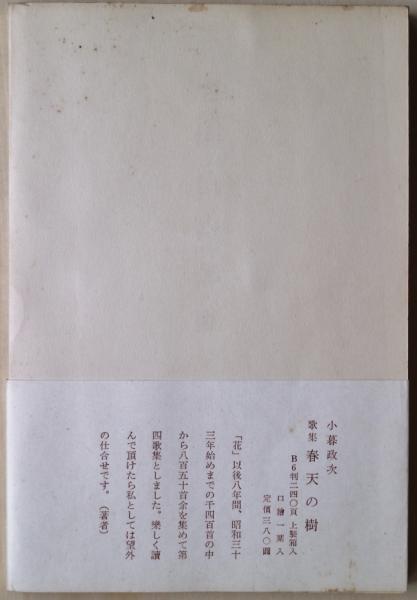 小暮政次
歌集 春天の樹
B6判二四〇頁 上製箱入
口繪一葉入
定價三八〇圓
「花」以後八年間、昭和三十
三年始めまでの千四百首の中
から八百五十首余を集めて第
四歌集としました。樂しく讀
んで頂けたら私としては望外
の仕合せです。(著者)